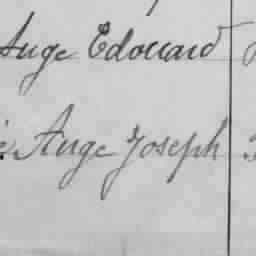 Ange Edouard
Ange Joseph